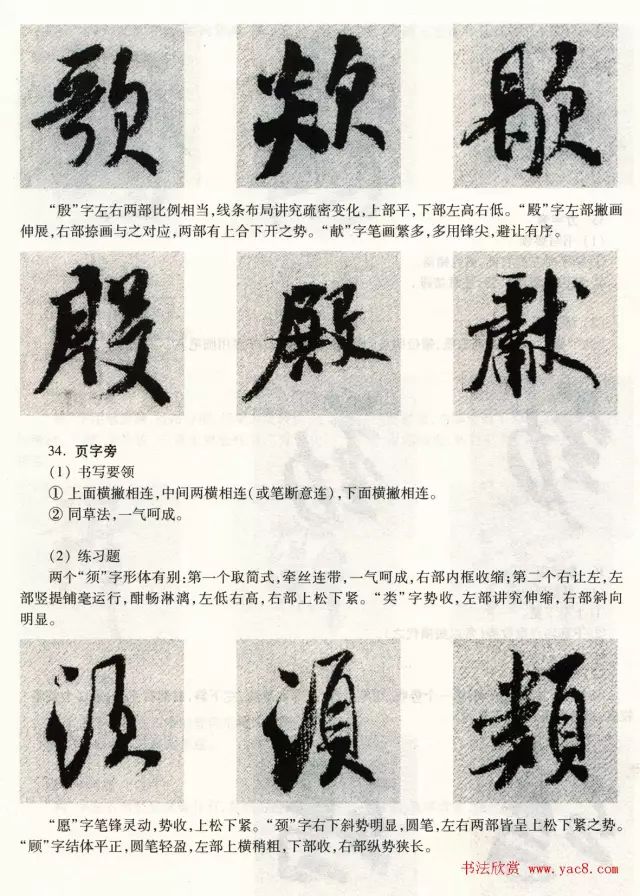 歌 欻 歇
“殷”字左右两部比例相当,线条布局讲究疏密变化,上部平,下部左高右低。“殿”字左部撇画
伸展,右部捺画与之对应,两部有上合下开之势。“献”字笔画繁多,多用锋尖,避让有序。
殷 殿 献
34. 页字旁
(1) 书写要领
① 上面横撇相连,中间两横相连(或笔断意连),下面横撇相连。
② 同草法,一气呵成。
(2) 练习题
两个“须”字形体有别:第一个取简式,牵丝连带,一气呵成,右部内框收缩;第二个右让左,左
部竖提铺毫运行,酣畅淋漓,左低右高,右部上松下紧。“类”字势收,左部讲究伸缩,右部斜向
明显。
须 须 類
“愿”字笔锋灵动,势收,上松下紧。“颈”字右下斜势明显,圆笔,左右两部皆呈上松下紧之势。
“顾”字结体平正,圆笔轻盈,左部上横稍粗,下部收,右部纵势狭长。
书法欣赏 www.yac8.com